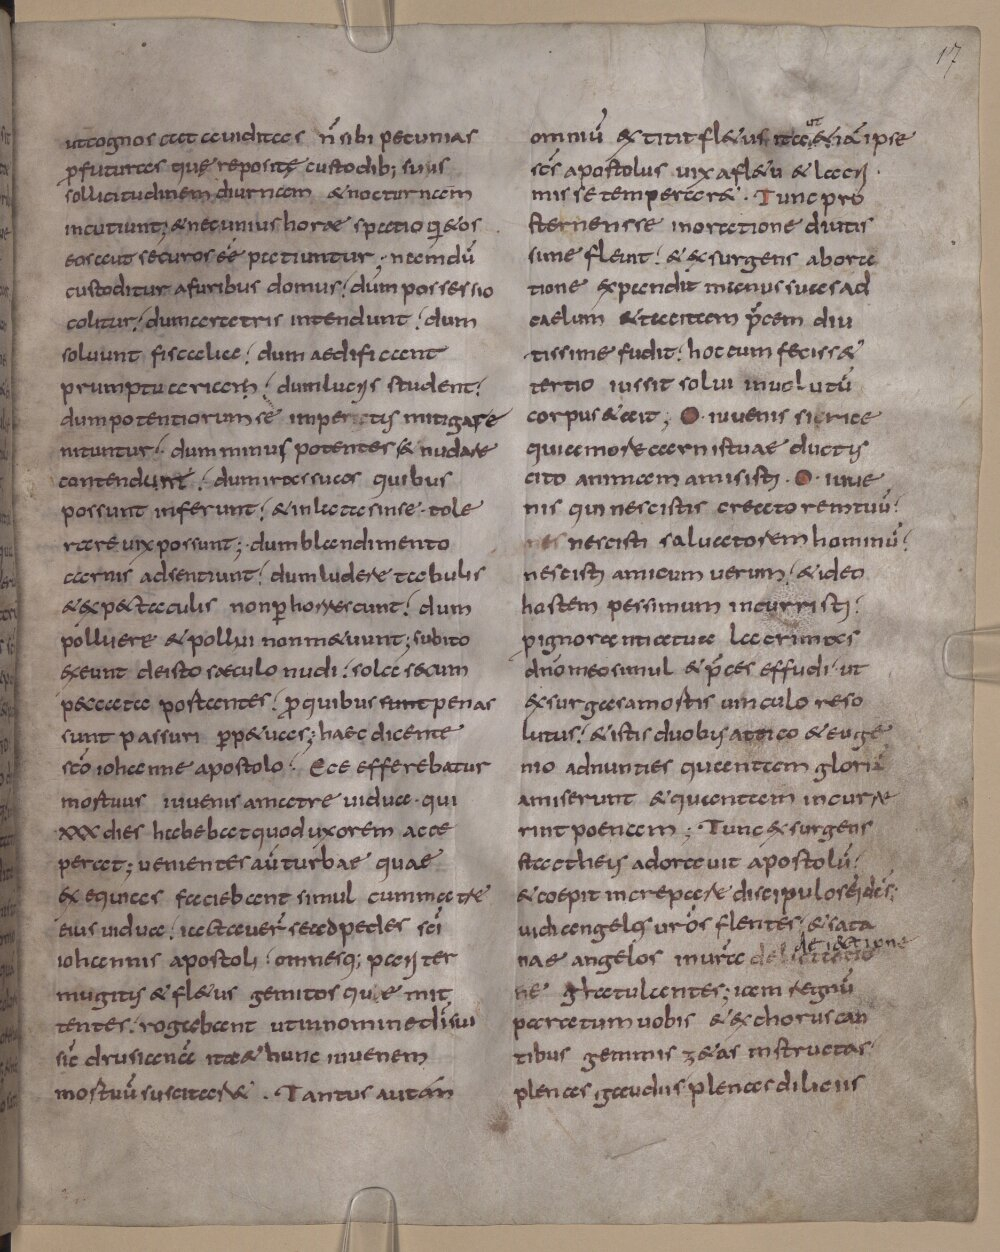 17
ut cognoscat avditas n̄ sibi pecunias
ꝓfuturas quę repositę custodib; suis
sollicitudinem diurnam & nocturnam
incutiunt; & nec unius horae spatio qđ eos
eos aut securos eē patiuntur; nam dū
custoditur a furibus domus; dum possessio
colitur; dum aratris intendunt; dum
soluunt fiscalia; dum aedificant
prumptuaria; dum lucris student;
dum potentiorum se impetus mitigare
nituntur; dum minus potentes & nudare
contendunt; dum iras suas quibus
possunt inferunt; & inlatas in se tole
rare vix possunt; dum blandimento
carnis adsentiunt; dum ludere tabulis
& expectaculis non ꝑhorrescunt; dum
polluere & pollui non m&uunt; subito
exeunt de isto sæculo nudi; sola secum
peccata portantes; ꝓ quibus sunt penas
sunt passuri ꝑp&uas; haec dicente
sc̄o iohanne apostolo; Ecce efferebatur
mortuus iuvenis a matre vidua qui
xxx dies habebat quod uxorem acce
perat; venientes aū turbae quae
exequias faciebant simul cum matre
eius vidua; iactaver̄ se ad pedes sc̄i
iohannis apostoli; omnesq; pariter
mugitus & fl&us gemitos que mit
tentes rogabant ut in nomine dī sui
sic̄ drusianā ita & hunc iuvenem
mortuū suscitar& . Tantus autē
omniū extitit fl&us ita ut & iā ipse
sc̄s apostolus vix a fl&u & lacri
mis se temperar& . Tunc pro
sternens se in oratione diutis
sime flevit; & exsurgens ab ora
tione expandit manus suas ad
caelum & tacitam p̄cem diu
tissime fudit; hoc cum feciss&
tertio iussit solui involutū
corpus & ait; O iuvenis si
qui amore carnis tuae ductus
cito animam amisisti . O iuve
nis qui nescistis creatorem tuū;
nescisti salvatorem hominū;
nescisti amicum verum; & ideo
hostem pessimum incurristi;
pro ignorantia tua lacrimas
dn̄o meo simul & p̄ces effudi ut
exsurgas a mortis vinculo reso
lutus; & istis duobus attico & euge
nio adnunties quantam gloriā
amiserunt & quantam incurre
rint poenam; Tunc exsurgens
stactheus adoravit apostolū;
& coepit increpare discipulos ei dicēs;
vidi angelos vrōs flentes; & sata
nae angelos in vrā deiectione
gratulantes; iam regnū
paratum vobis & ex chorus can
tibus gemmis z&as instructas
plenas gaudiis plenas diliciis